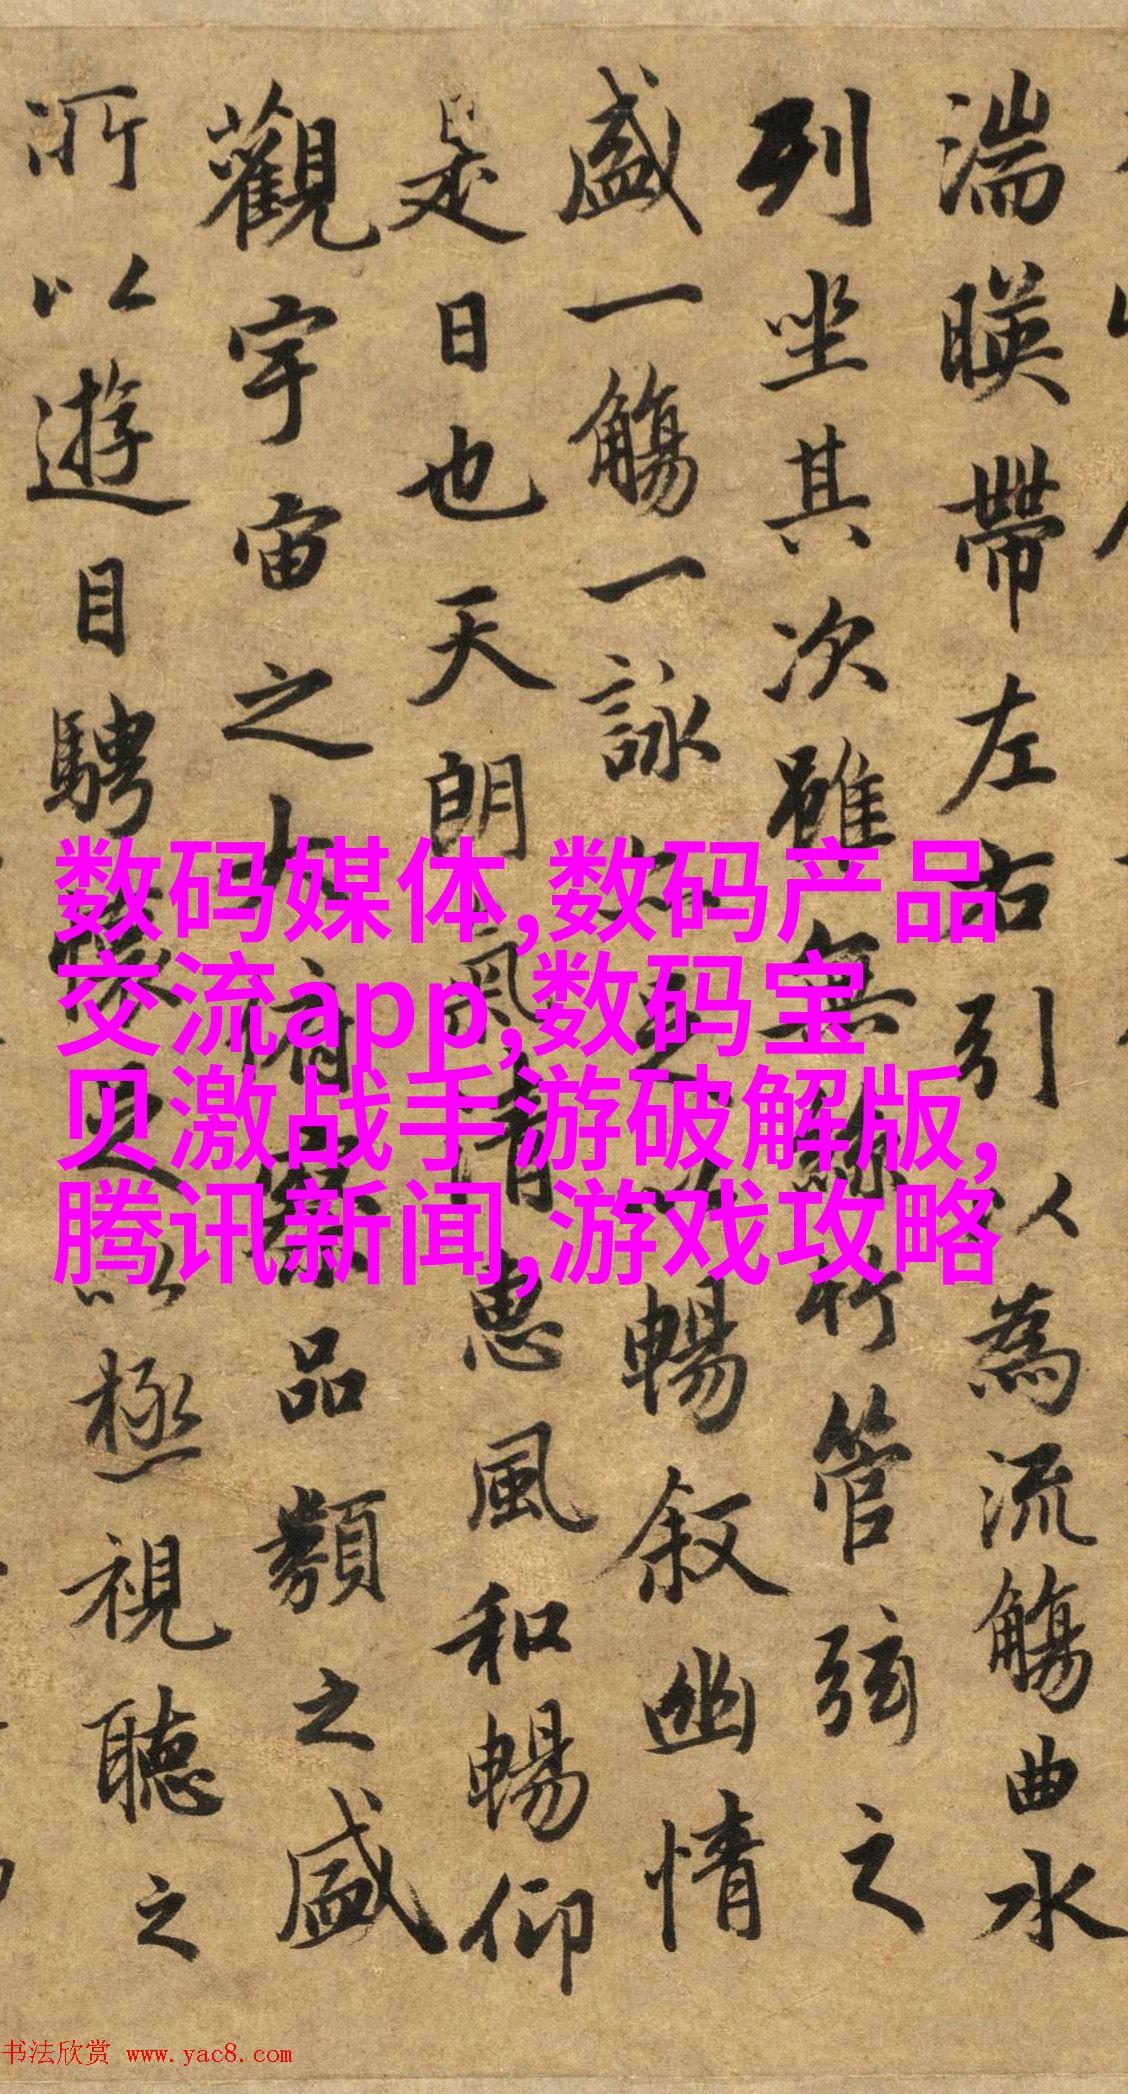 湍暎帶左右引以為流觴曲水
列坐其次雖無絲竹管弦之
盛一觴一詠亦足以暢叙幽情
是日也天朗氣清惠風和暢仰
觀宇宙之大俯察品類之盛
所以遊目騁懷足以極視聽之
数码媒体,数码产品
交流app,数码宝
贝激战手游破解版,
腾讯新闻,游戏攻略
书法欣赏 www.yac8.com